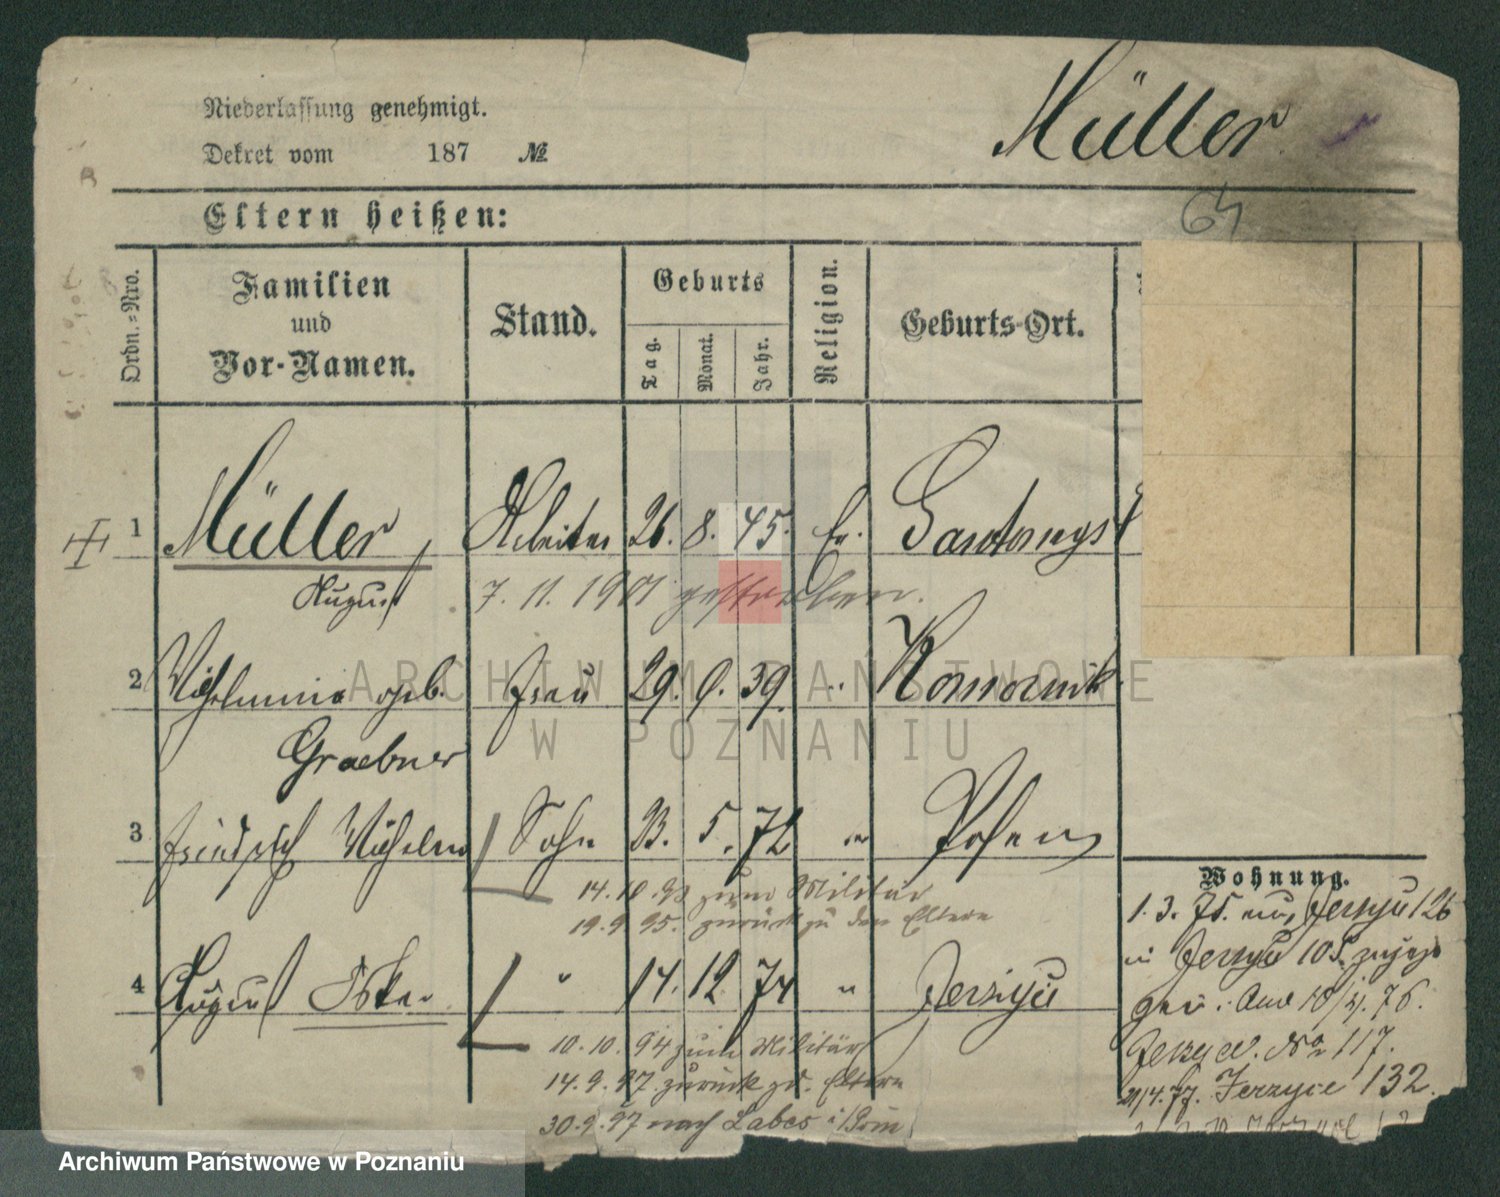 Niederlassung genehmigt.
Müller
Dekret vom 187 №
64
Eltern heißen:
Ordn.=Nro.
Familien
und
Vor-Namen.
Stand.
Geburts
Tag.
Monat.
Jahr.
Religion.
Geburts-Ort.
1 Müller Arbeiter 26. 8. 45. Ev.
August 7. 11. 1901 gestorben.
2 Wilhelmine geb. Frau 29. 9. 39. " Komornik
Graebner
3 Friedrich Wilhelm Sohn 5. 72 " Posen
14. 10. 93 zum Militär
19. 9. 95. zurück zu den Eltern
4 August Oskar " 14. 12. 74 " Jerzyce
10. 10. 94 zum Militär
14. 9. 97. zurück zd. Eltern
30. 9. 97 nach Labes i/Pom
Wohnung.
1. 3. 75. Jerzyce 126
in Jerzyce 105. zugezo
gen. Am 10/4. 76.
Jerzyce. No 117.
21/4. 77. Jerzyce 132.
ARCHIWUM PAŃSTWOWE
W POZNANIU
Archiwum Państwowe w Poznaniu